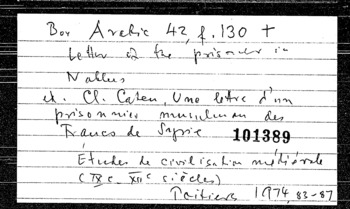 Box Arabic 42, f. 130 +
Letter of the prisoner in
Nablus
ed. Cl. Cahen, Une lettre d'un
prisonnier musulman des
Francs de Syrie 101389
Études de civilisation médiévale
(IXe - XIIe siècles)
Poitiers 1974, 83-87